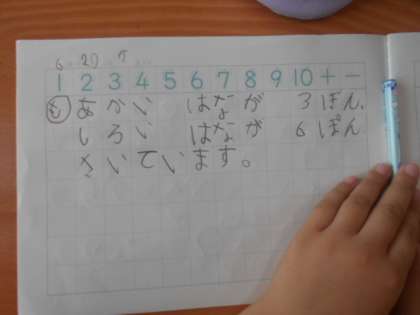 6 27 ケ
1 2 3 4 5 6 7 8 9 10 + −
も あかい はなが 3 ぼん、
しろい はなが 6 ぽん
さいています。